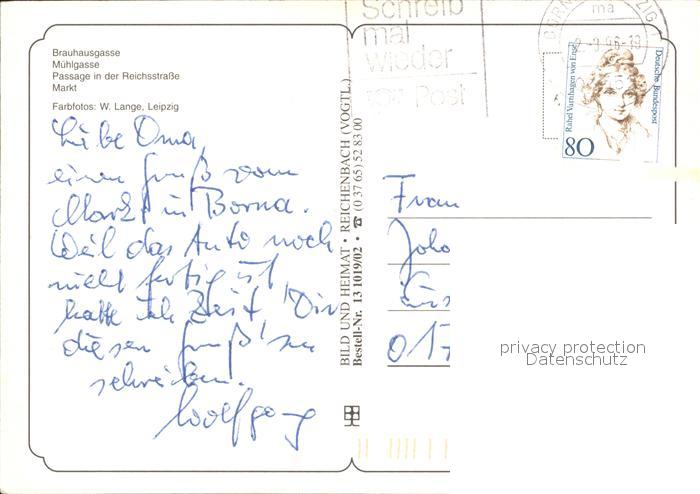 Brauhausgasse
Mühlgasse
Passage in der Reichsstraße
Markt
Farbfotos: W. Lange, Leipzig
Liebe Oma,
einen Gruß vom
Markt in Borna.
Weil das Auto noch
nicht fertig ist,
hatte ich Zeit, Dir
diesen Gruß zu
schreiben.
Wolfgang
BILD UND HEIMAT • REICHENBACH (VOGTL.)
Bestell-Nr. 13 1019/02 • ☎ (0 37 65) 52 83 00
Schreib
mal
wieder
Post
Rahel Varnhagen von Ense
Deutsche Bundespost
80
Frau
Joha
017
privacy protection
Datenschutz